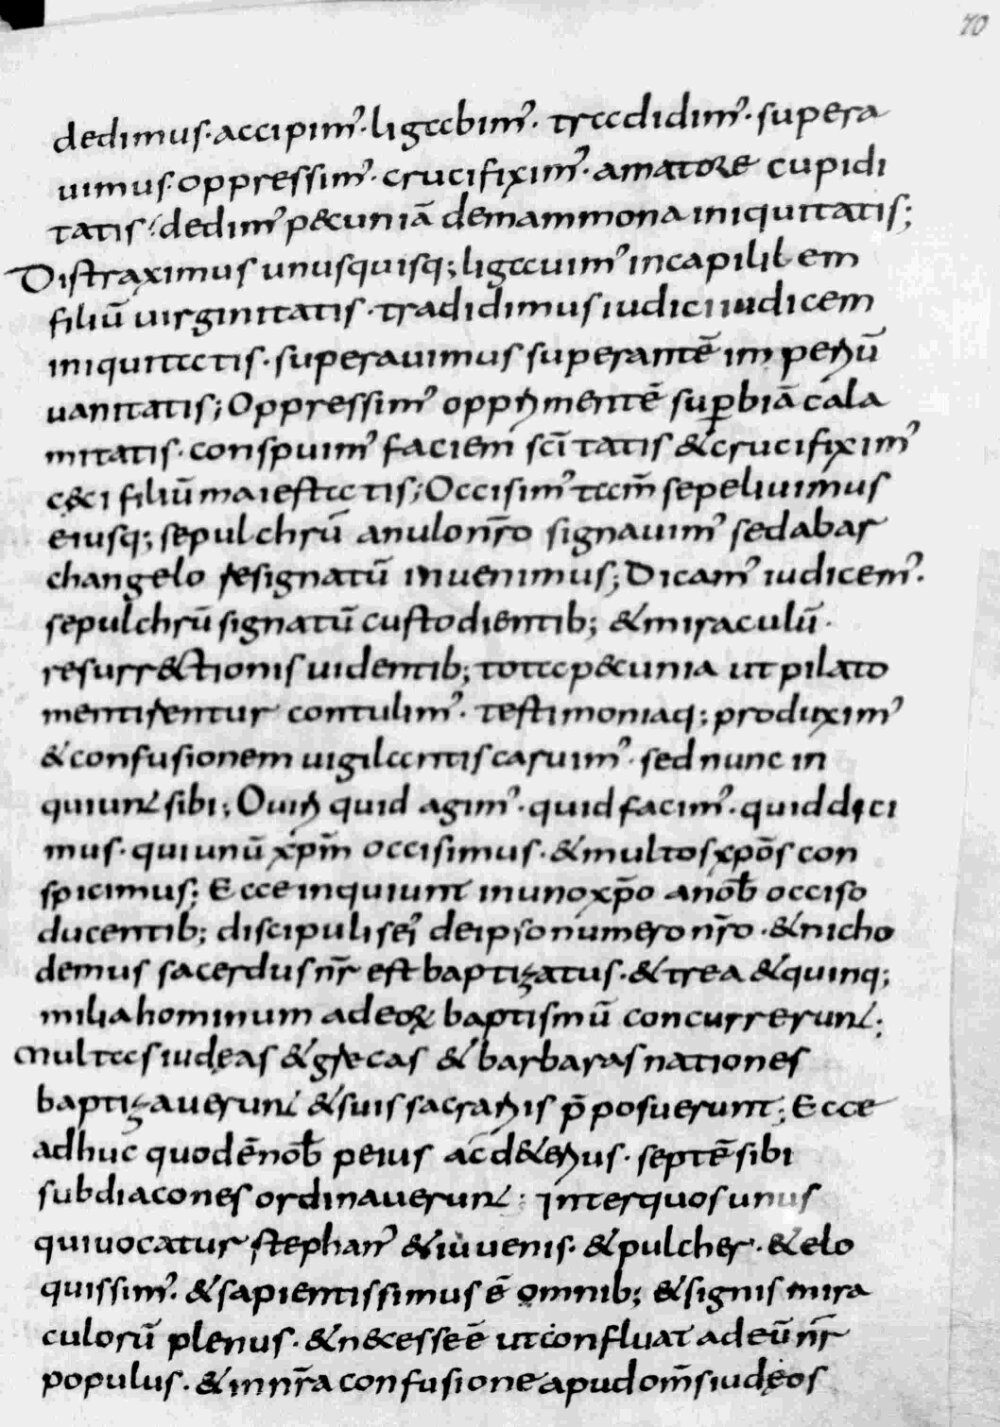 70
dedimus· accipimꝰ· ligabimꝰ· tradidimꝰ· supera
uimus· oppressimꝰ· crucifiximꝰ· amatore cupidi
tatis; dedimꝰ p&cuniā demammona iniquitatis;
Distraximus unusquisq; ligauimꝰ incapilil em
filiū uirginitatis· tradidimus iudici iudicem
iniquitatis· superauimus superantē imperiū
uanitatis; Oppressimꝰ opprimentē suꝑbiā cala
mitatis· conspuimꝰ faciem sc̄itatis & crucifiximꝰ
c&i filiū maiestatis; Occisimꝰ tam̄ sepeliuimus
eiusq; sepulchrū anulo nr̄o signauimꝰ sed abar
changelo resignatū inuenimus; Dicamꝰ iudicemꝰ·
sepulchrū signatū custodientib; & miraculū·
resurr&ctionis uidentib; tota p&cunia ut pilato
mentirentur contulimꝰ· testimoniaq; produximꝰ
& confusionem uigilantis caruimꝰ· sed nunc in
quiunt sibi; Quiri quid agimꝰ· quid facimꝰ· quid dici
mus· qui unū xp̄m occisimus· & multos xp̄os con
spicimus; Ecce inquiunt in uno xp̄o anob̄ occiso
ducentib; discipuli sei deipso numero nr̄o· & nicho
demus sacerdus nr̄ est baptizatus· & trea & quinq;
milia hominum ad eoꝝ baptismū concurrerunt;
multas iudęas & grecas & barbaras nationes
baptizauerunt & suis sacrariis p̄posuerunt; Ecce
adhuc quod ē nob̄ peius ac d&erius· septē sibi
subdiacones ordinauerunt; Inter quos unus
qui uocatur stephanꝰ & iuuenis· & pulcher· & elo
quissimꝰ· & sapientissimus ē omnib; & signis mira
culorū plenus· & n&cesse ē ut confluat ad eū nr̄
populus· & in nr̄a confusione apud om̄s iudęos